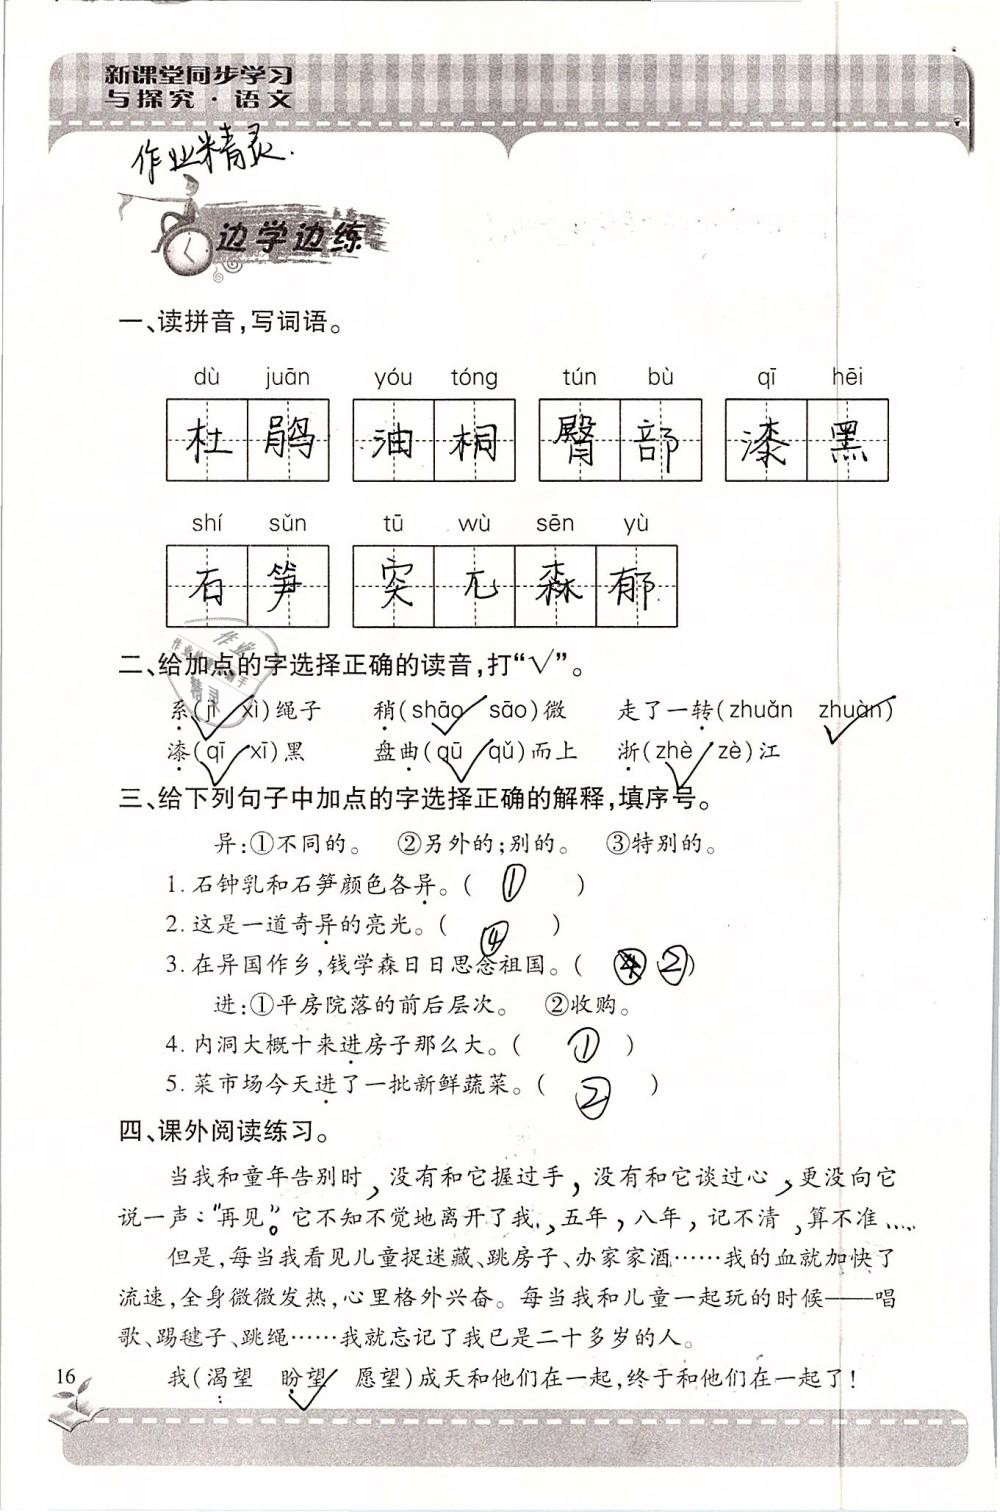 新课堂同步学习
与探究·语文
作业精灵.
边学边练
一、读拼音,写词语。
dù juān yóu tóng tún bù qī hēi
杜鹃 油桐 臀部 漆黑
shí sǔn tū wù sēn yù
石笋 突兀森郁
二、给加点的字选择正确的读音,打“√”。
系(jì√ xì)绳子 稍(shāo√ sāo)微 走了一转(zhuǎn zhuàn√)
漆(qī√ xī)黑 盘曲(qū√ qǔ)而上 浙(zhè√ zè)江
三、给下列句子中加点的字选择正确的解释,填序号。
异:①不同的。 ②另外的;别的。 ③特别的。
1. 石钟乳和石笋颜色各异。( ① )
2. 这是一道奇异的亮光。( ④ )
3. 在异国作乡,钱学森日日思念祖国。( ② )
进:①平房院落的前后层次。 ②收购。
4. 内洞大概十来进房子那么大。( ① )
5. 菜市场今天进了一批新鲜蔬菜。( ② )
四、课外阅读练习。
当我和童年告别时,没有和它握过手,没有和它谈过心,更没向它
说一声:“再见”。它不知不觉地离开了我,五年,八年,记不清,算不准……
但是,每当我看见儿童捉迷藏、跳房子、办家家酒……我的血就加快了
流速,全身微微发热,心里格外兴奋。每当我和儿童一起玩的时候——唱
歌、踢毽子、跳绳……我就忘记了我已是二十多岁的人。
我(渴望 盼望√ 愿望)成天和他们在一起,终于和他们在一起了!
16